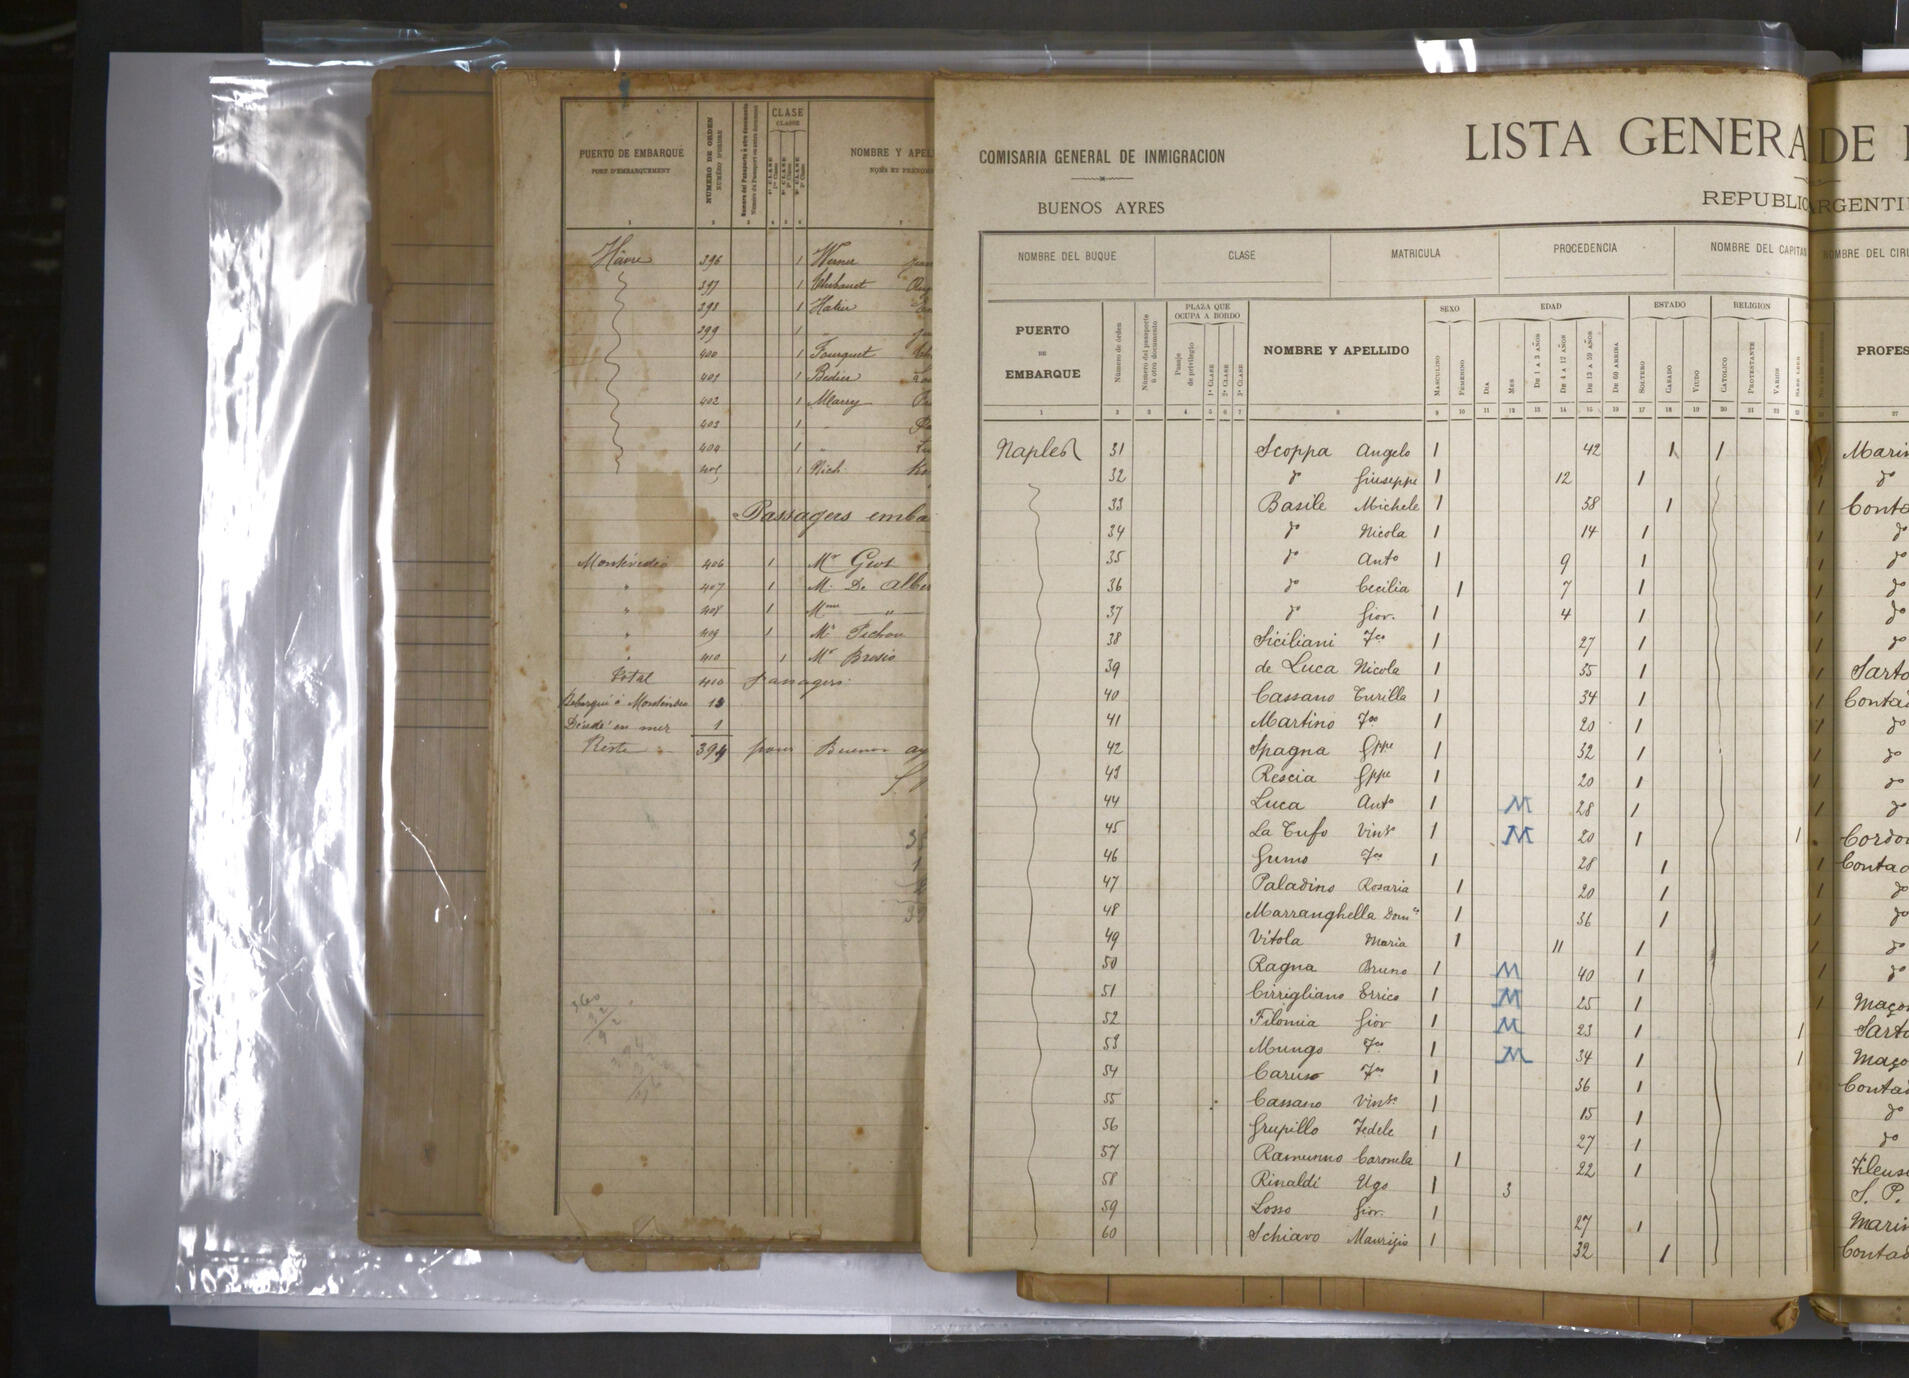 PUERTO DE EMBARQUE
PORT D'EMBARQUEMENT
NUMERO DE ORDEN
NUMÉRO D'ORDRE
CLASE
CLASSE
NOMBRE Y APEL
Havre 396 1 Werner
397 1
398 1 Hatier
399 1 "
400 1 Fourquet
401 1 Bedier
402 1 Marry
403 1 "
404 1 "
405 1 Rich
Passagers emba
Montévidéo 406 1 Mr Geot
" 407 1 M. De Alber
" 408 1 Mme "
" 409 1 Mr Pichon
" 410 1 Mr Brosio
Total 410 passagers
Debarqué à Montevideo 15
Décédé en mer 1
Reste 394 pour Buenos ay
COMISARIA GENERAL DE INMIGRACION
BUENOS AYRES
LISTA GENERA DE
REPUBLIC ARGENTI
NOMBRE DEL BUQUE CLASE MATRICULA PROCEDENCIA NOMBRE DEL CAPITAN NOMBRE DEL CIRU
PUERTO DE EMBARQUE
Número de órden
Número del pasaporte ú otro documento
PLAZA QUE OCUPA A BORDO
Pasaje de privilegio
1ª CLASE
2ª CLASE
3ª CLASE
NOMBRE Y APELLIDO
SEXO
MASCULINO
FEMENINO
EDAD
DIA
MES
DE 1 A 3 AÑOS
DE 4 A 12 AÑOS
DE 13 A 59 AÑOS
DE 60 ARRIBA
ESTADO
SOLTERO
CASADO
VIUDO
RELIGION
CATOLICO
PROTESTANTE
VARIOS
SABE LEER
PROFES
1 2 3 4 5 6 7 8 9 10 11 12 13 14 15 16 17 18 19 20 21 22 23 27
Naples 31 Scoppa Angelo 1 42 1 1 Marin
32 do Giuseppe 1 12 1 1 do
33 Basile Michele 1 58 1 1 Conta
34 do Nicola 1 14 1 1 do
35 do Anto 1 9 1 1 do
36 do Cecilia 1 7 1 1 do
37 do Giov. 1 4 1 1 do
38 Siciliani Fco 1 27 1 1 do
39 de Luca Nicola 1 35 1 1 Sarto
40 Cassano Turilla 1 34 1 1 Contad
41 Martino Fco 1 20 1 1 do
42 Spagna Gppe 1 32 1 1 do
43 Rescia Gppe 1 20 1 1 do
44 Luca Anto 1 M 28 1 1 do
45 La Tufo Vinzo 1 M 20 1 1 Cordon
46 Gumo Fco 1 28 1 1 Contad
47 Paladino Rosaria 1 20 1 1 do
48 Marranghella Domca 1 36 1 1 do
49 Vitola Maria 1 11 1 1 do
50 Ragna Bruno 1 M 40 1 1 do
51 Cirrigliano Errico 1 M 25 1 1 Maçon
52 Filomia Giov 1 M 23 1 1 Sarto
53 Mungo Fco 1 M 34 1 1 Maço
54 Caruso Fco 1 36 1 Contad
55 Cassano Vinzo 1 15 1 do
56 Grupillo Fedele 1 27 1 do
57 Ramunno Carmela 1 22 1 Fileus
58 Rinaldi Ugo 1 3 S. P.
59 Losso Giov. 1 27 1 Marin
60 Schiavo Maurizio 1 32 1 Contad